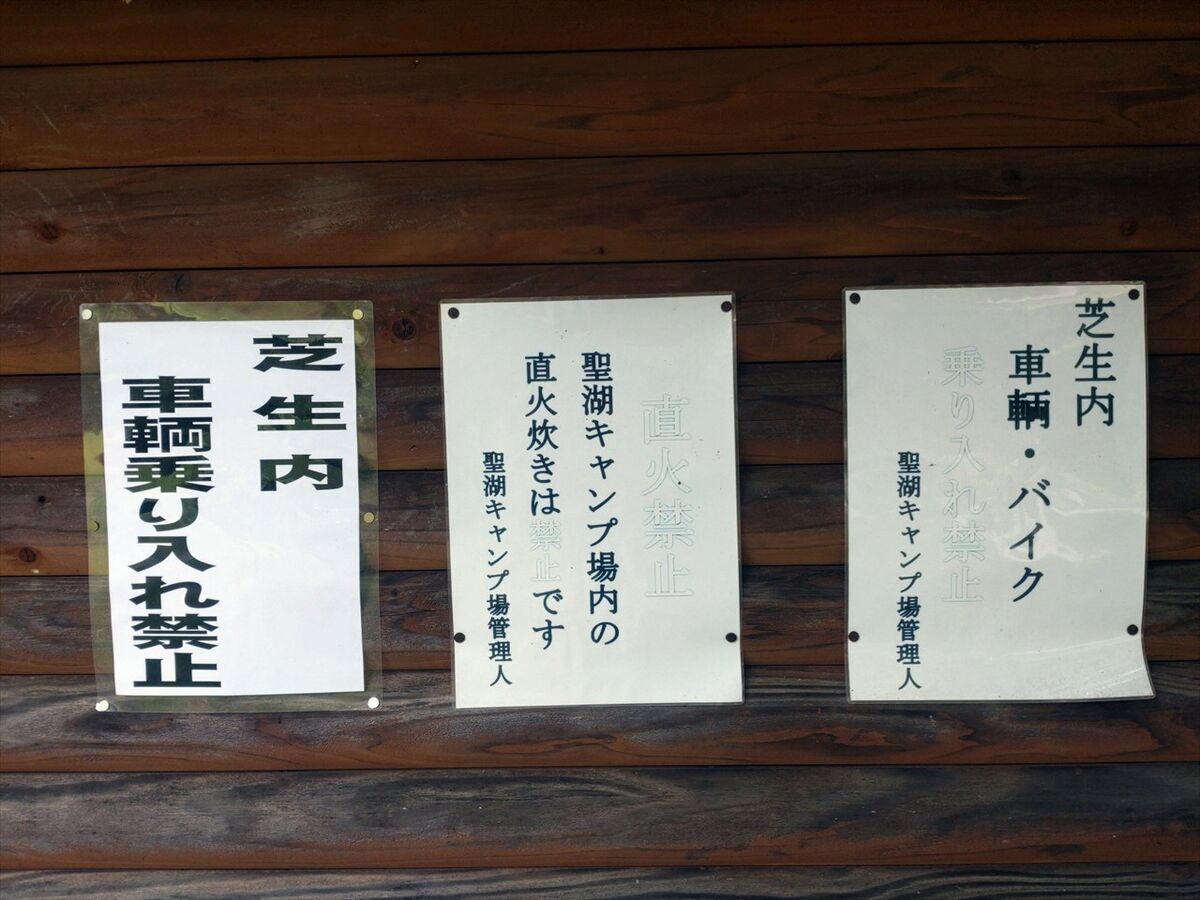 芝生内
車輌・バイク
乗り入れ禁止
聖湖キャンプ場管理人
直火禁止
聖湖キャンプ場内の
直火炊きは禁止です
聖湖キャンプ場管理人
芝生内
車輌乗り入れ禁止